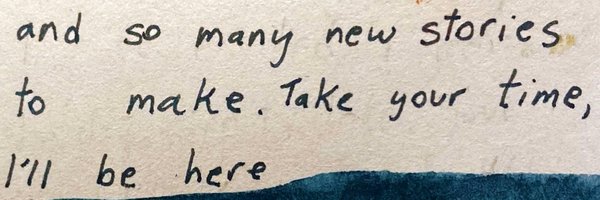 and so many new stories
to make. Take your time,
I'll be here